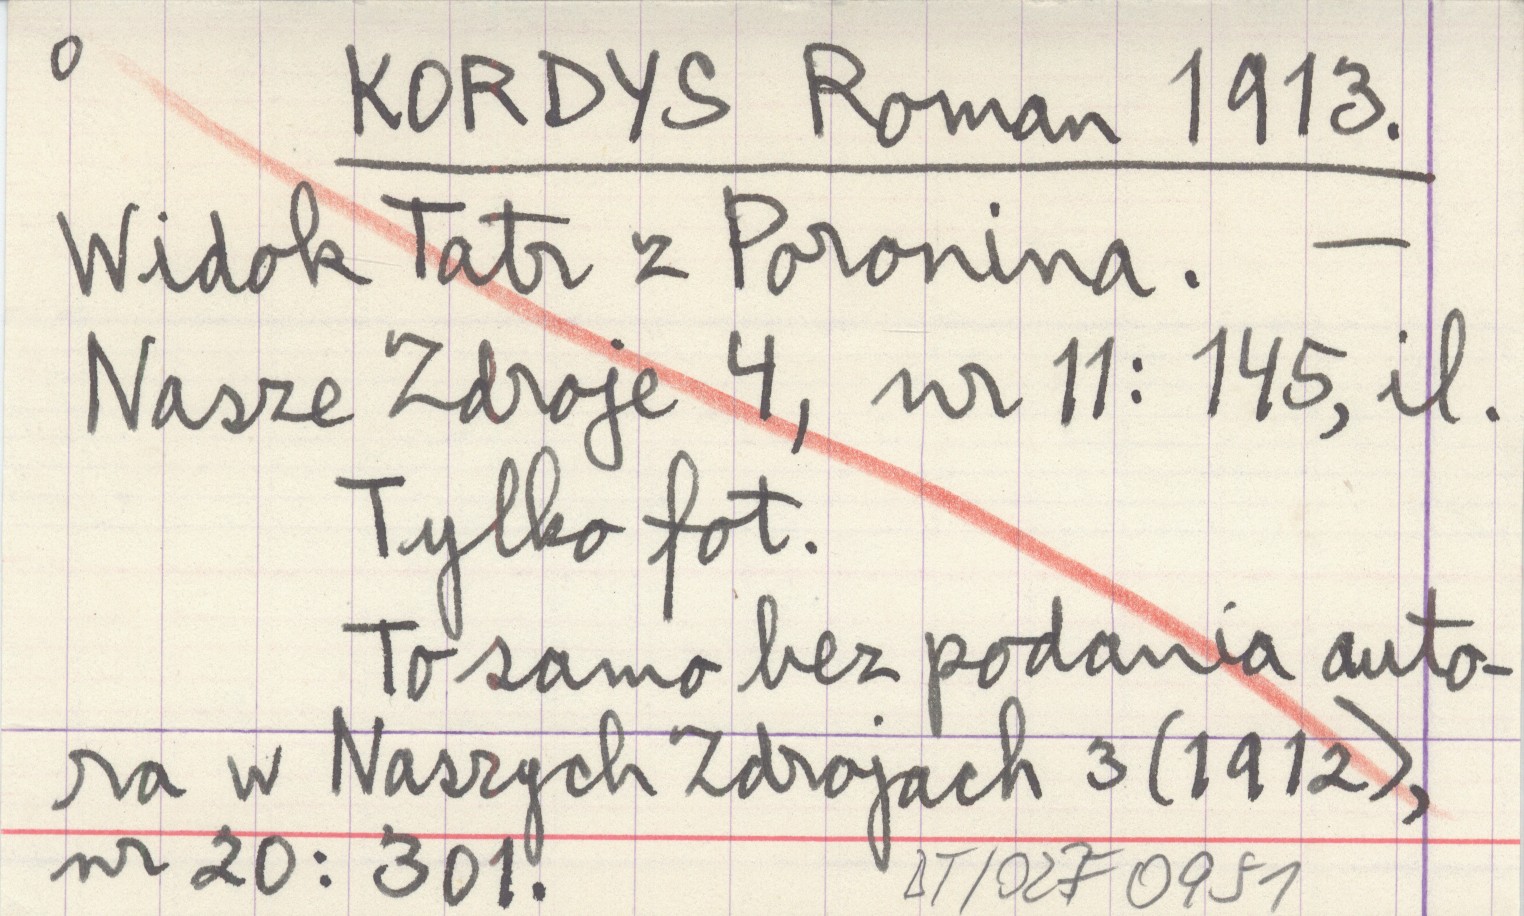 o KORDYS Roman 1913.
Widok Tatr z Poronina. —
Nasze Zdroje 4, nr 11: 145, il.
Tylko fot.
To samo bez podania auto-
ra w Naszych Zdrojach 3 (1912),
nr 20: 301.
0951